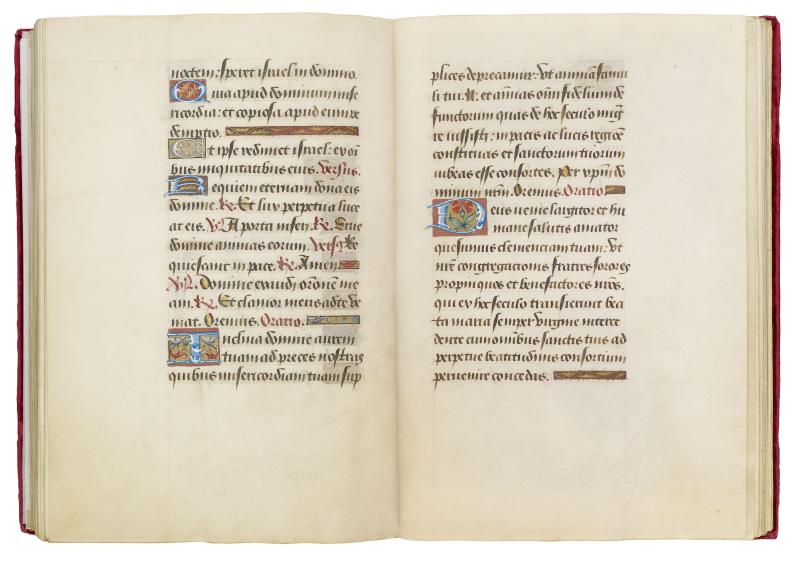 noctem: speret israel in domino.
Quia apud dominum mise
ricordia: et copiosa apud eum re
demptio.
Et ipse redimet israel: ex om
bus iniquitatibus eius. Versus.
Requiem eternam dona eis
domine. R. Et lux perpetua luce
at eis. V. A porta inferi. R. Erue
domine animas eorum. Versus Re
quiescant in pace. R. Amen.
V. Domine exaudi oronem me
am. R. Et clamor meus ad te ve
niat. Oremus. Oratio.
Inclina domine aurem
tuam ad preces nostras
quibus misericordiam tuam sup
plices deprecamur: Ut animam famu
li tui. N. et animas omnium fidelium de
functorum quas de hoc seculo migra
re iussisti: in pacis ac lucis regione
constituas et sanctorum tuorum
iubeas esse consortes. Per xpm do
minum nrm. Oremus. Oratio
Deus venie largitor et hu
mane salutis amator
quesumus clemenciam tuam: Ut
nre congregacionis fratres sorores
propinquos et benefactores nros.
qui ex hoc seculo transierunt bea
ta maria semper virgine interce
dente cum omnibus sanctis tuis ad
perpetue beatitudinis consortium
pervenire concedas.